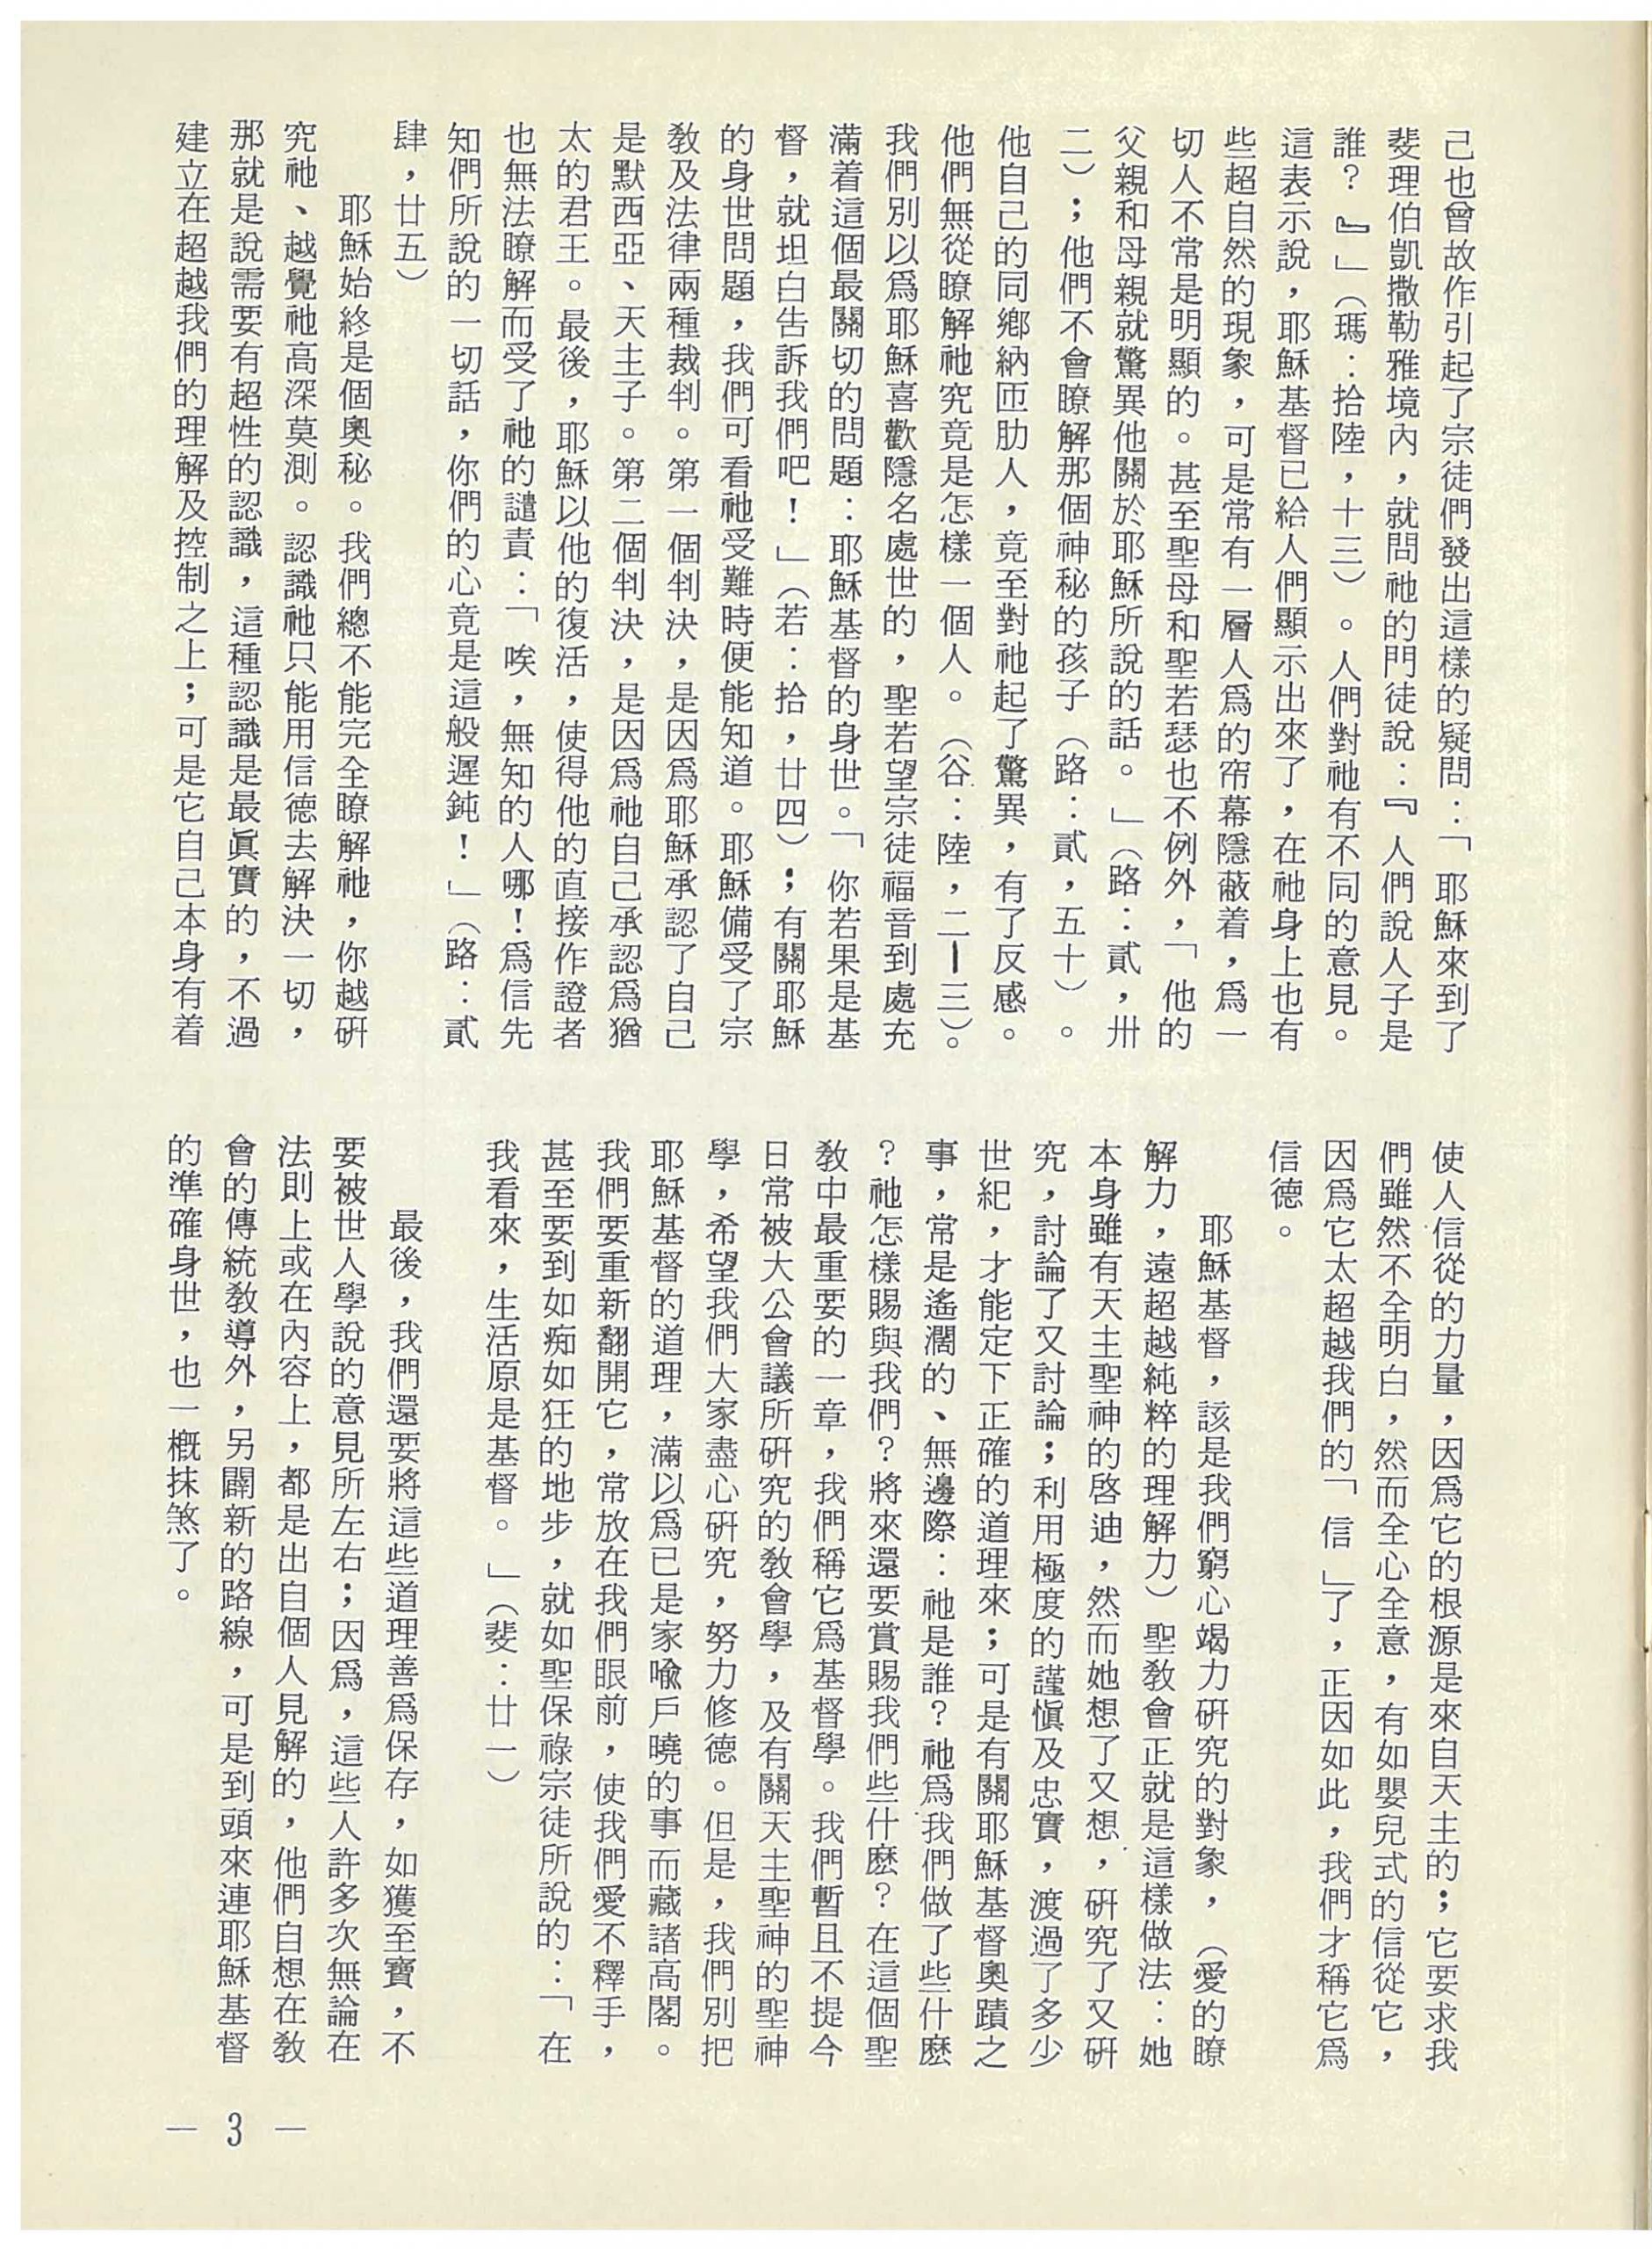 己也曾故作引起了宗徒們發出這樣的疑問：「耶穌來到了
斐理伯凱撒勒雅境內，就問祂的門徒說：『人們說人子是
誰？』」（瑪：拾陸，十三）。人們對祂有不同的意見。
這表示說，耶穌基督已給人們顯示出來了，在祂身上也有
些超自然的現象，可是常有一層人爲的帘幕隱蔽着，爲一
切人不常是明顯的。甚至聖母和聖若瑟也不例外，「他的
父親和母親就驚異他關於耶穌所說的話。」（路：貳，卅
二）；他們不會瞭解那個神秘的孩子（路：貳，五十）。
他自己的同鄉納匝肋人，竟至對祂起了驚異，有了反感。
他們無從瞭解祂究竟是怎樣一個人。（谷：陸，二－三）。
我們別以爲耶穌喜歡隱名處世的，聖若望宗徒福音到處充
滿着這個最關切的問題：耶穌基督的身世。「你若果是基
督，就坦白告訴我們吧！」（若：拾，廿四）；有關耶穌
的身世問題，我們可看祂受難時便能知道。耶穌備受了宗
教及法律兩種裁判。第一個判決，是因爲耶穌承認了自己
是默西亞、天主子。第二個判決，是因爲祂自己承認爲猶
太的君王。最後，耶穌以他的復活，使得他的直接作證者
也無法瞭解而受了祂的譴責：「唉，無知的人哪！爲信先
知們所說的一切話，你們的心竟是這般遲鈍！」（路：貳
肆，廿五）
耶穌始終是個奧秘。我們總不能完全瞭解祂，你越硏
究祂、越覺祂高深莫測。認識祂只能用信德去解決一切，
那就是說需要有超性的認識，這種認識是最眞實的，不過
建立在超越我們的理解及控制之上；可是它自己本身有着
使人信從的力量，因爲它的根源是來自天主的；它要求我
們雖然不全明白，然而全心全意，有如嬰兒式的信從它，
因爲它太超越我們的「信」了，正因如此，我們才稱它爲
信德。
耶穌基督，該是我們窮心竭力硏究的對象，（愛的瞭
解力，遠超越純粹的理解力）聖教會正就是這樣做法：她
本身雖有天主聖神的啓迪，然而她想了又想，硏究了又硏
究，討論了又討論；利用極度的謹愼及忠實，渡過了多少
世紀，才能定下正確的道理來；可是有關耶穌基督奧蹟之
事，常是遙濶的、無邊際：祂是誰？祂爲我們做了些什麽
？祂怎樣賜與我們？將來還要賞賜我們些什麽？在這個聖
教中最重要的一章，我們稱它爲基督學。我們暫且不提今
日常被大公會議所硏究的教會學，及有關天主聖神的聖神
學，希望我們大家盡心硏究，努力修德。但是，我們別把
耶穌基督的道理，滿以爲已是家喩戶曉的事而藏諸高閣。
我們要重新翻開它，常放在我們眼前，使我們愛不釋手，
甚至要到如痴如狂的地步，就如聖保祿宗徒所說的：「在
我看來，生活原是基督。」（斐：廿一）
最後，我們還要將這些道理善爲保存，如獲至寶，不
要被世人學說的意見所左右；因爲，這些人許多次無論在
法則上或在內容上，都是出自個人見解的，他們自想在教
會的傳統教導外，另闢新的路線，可是到頭來連耶穌基督
的準確身世，也一槪抹煞了。
— 3 —